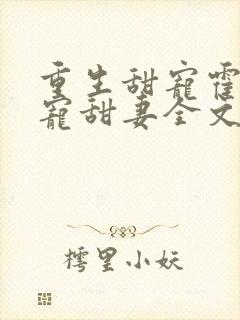 重生甜宠霍
宠甜妻全文
樗里小妖